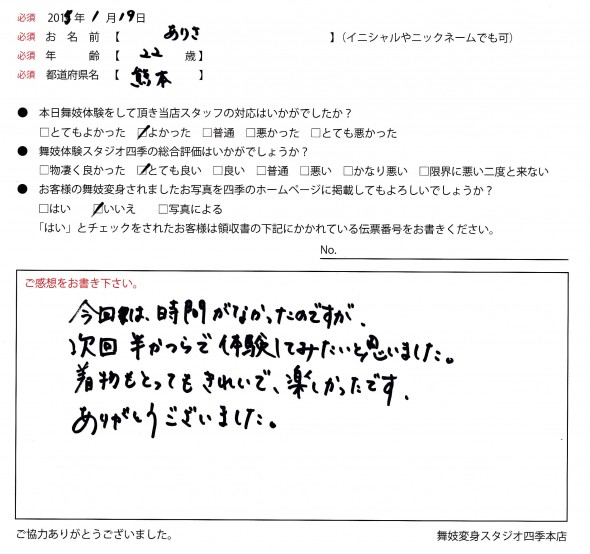 必須 2015年 1月 19日
必須 お名前【 ありさ 】（イニシャルやニックネームでも可）
必須 年齢【 22 歳】
必須 都道府県名【 熊本 】
● 本日舞妓体験をして頂き当店スタッフの対応はいかがでしたか？
□とてもよかった ☑よかった □普通 □悪かった □とても悪かった
● 舞妓体験スタジオ四季の総合評価はいかがでしょうか？
□物凄く良かった ☑とても良い □良い □普通 □悪い □かなり悪い □限界に悪い二度と来ない
● お客様の舞妓変身されましたお写真を四季のホームページに掲載してもよろしいでしょうか？
□はい ☑いいえ □写真による
「はい」とチェックをされたお客様は領収書の下記にかかれている伝票番号をお書きください。
No.
ご感想をお書き下さい。
今回は、時間がなかったのですが、
次回 半かつらで体験してみたいと思いました。
着物もとってもきれいで、楽しかったです.
ありがとうございました。
ご協力ありがとうございました。 舞妓変身スタジオ四季本店